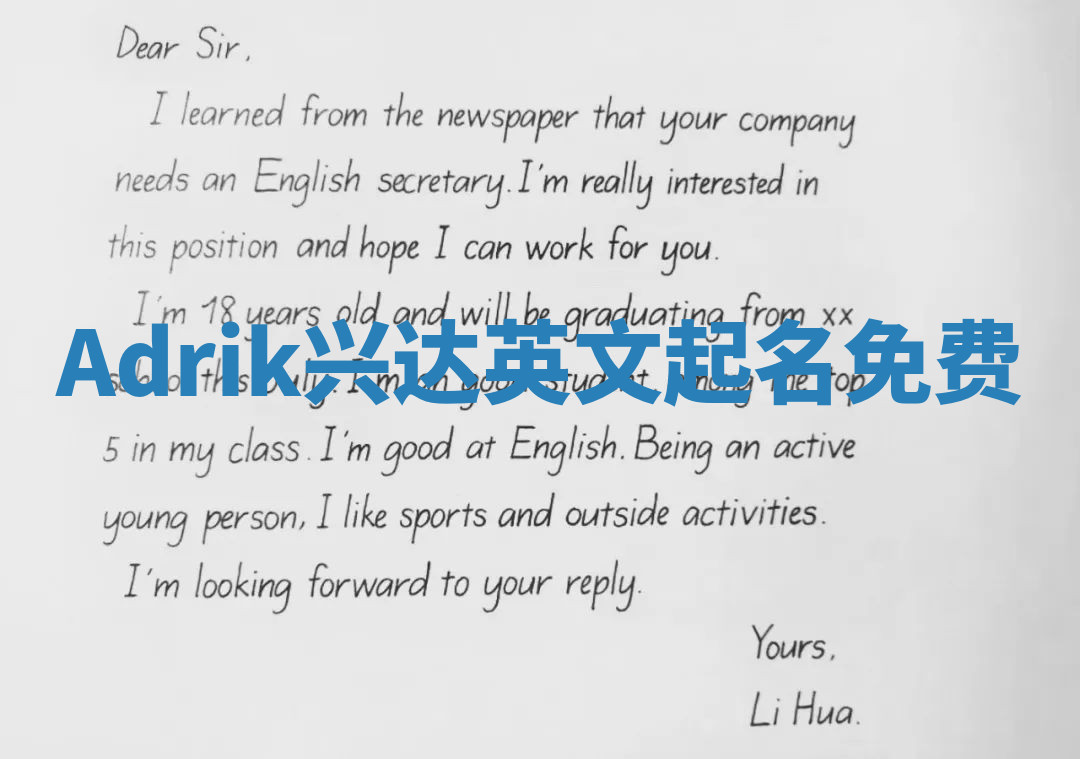 Dear Sir,
I learned from the newspaper that your company
needs an English secretary. I'm really interested in
this position and hope I can work for you.
I'm 18 years old and will be graduating from xx
Adrik兴达英文起名免费
school this July. I'm an good student, among the top
5 in my class. I'm good at English. Being an active
young person, I like sports and outside activities.
I'm looking forward to your reply.
Yours,
Li Hua.